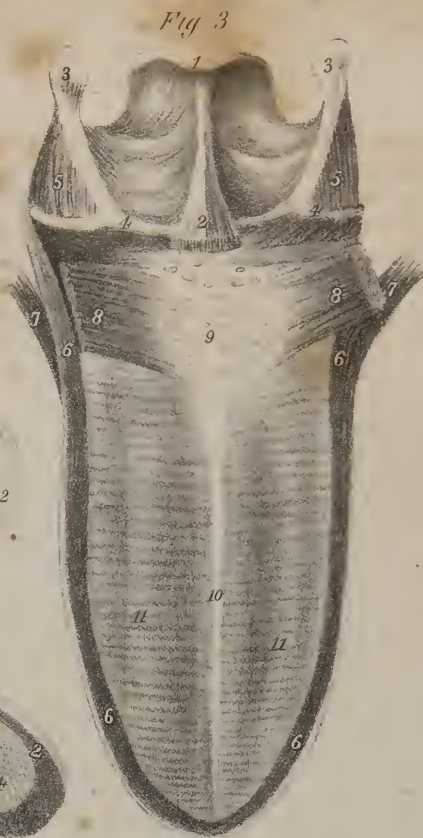 Fig 3
1
3 3
5 5
4 2 4
7 8 8 7
9
6 6
2
10
11 11
2
6 6
4